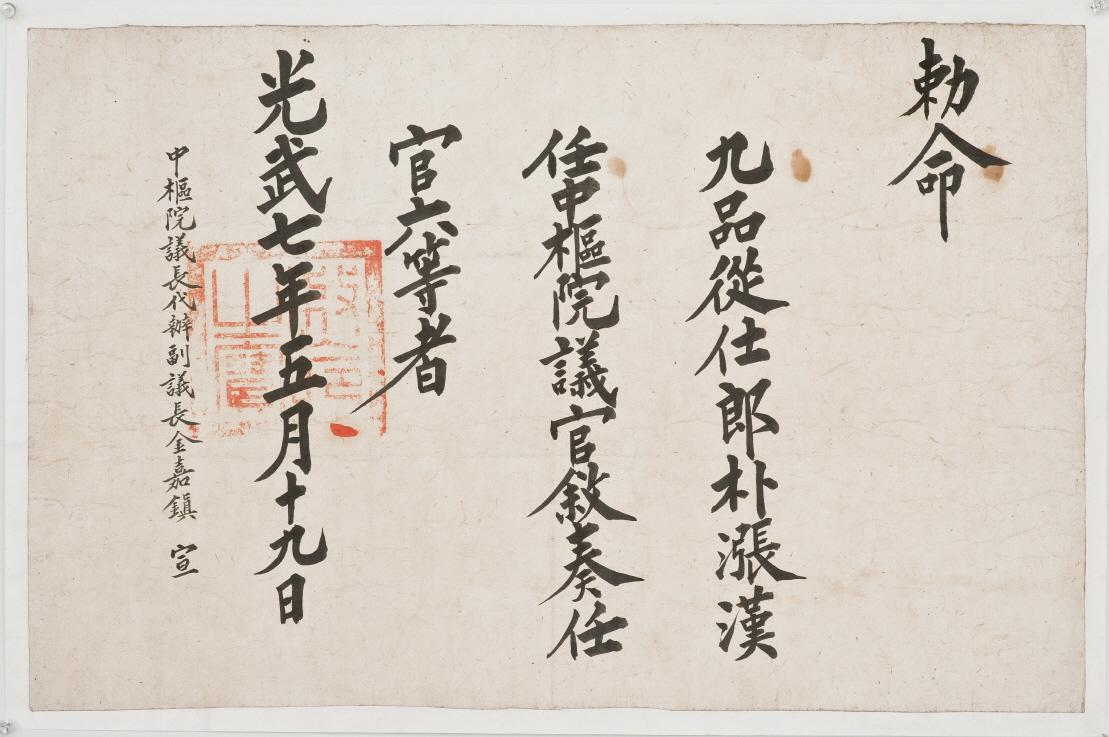 勅命
九品從仕郎朴漲漢
任中樞院議官敘奏任
官六等者
光武七年五月十九日
中樞院議長代辦副議長金嘉鎭 宣